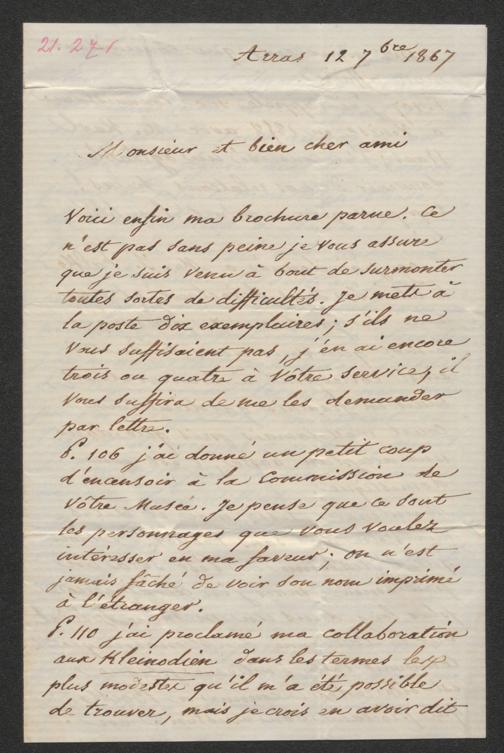 21. 271
Arras 12 7bre 1867
Monsieur et bien cher ami
Voici enfin ma brochure parue. Ce
n'est pas sans peine je vous assure
que je suis venu à bout de surmonter
toutes sortes de difficultés. Je mets à
la poste dix exemplaires; s'ils ne
vous suffisaient pas, j'en ai encore
trois ou quatre à vôtre service, il
vous suffira de me les demander
par lettre.
P. 106 j'ai donné un petit coup
d'encensoir à la Commission de
vôtre Musée. Je pense que ce sont
les personnages que vous voulez
intéresser en ma faveur; on n'est
jamais fâché de voir son nom imprimé
à l'étranger.
P. 110 j'ai proclamé ma collaboration
aux Kleinodien dans les termes les
plus modestes qu'il m'a été possible
de trouver, mais je crois en avoir dit